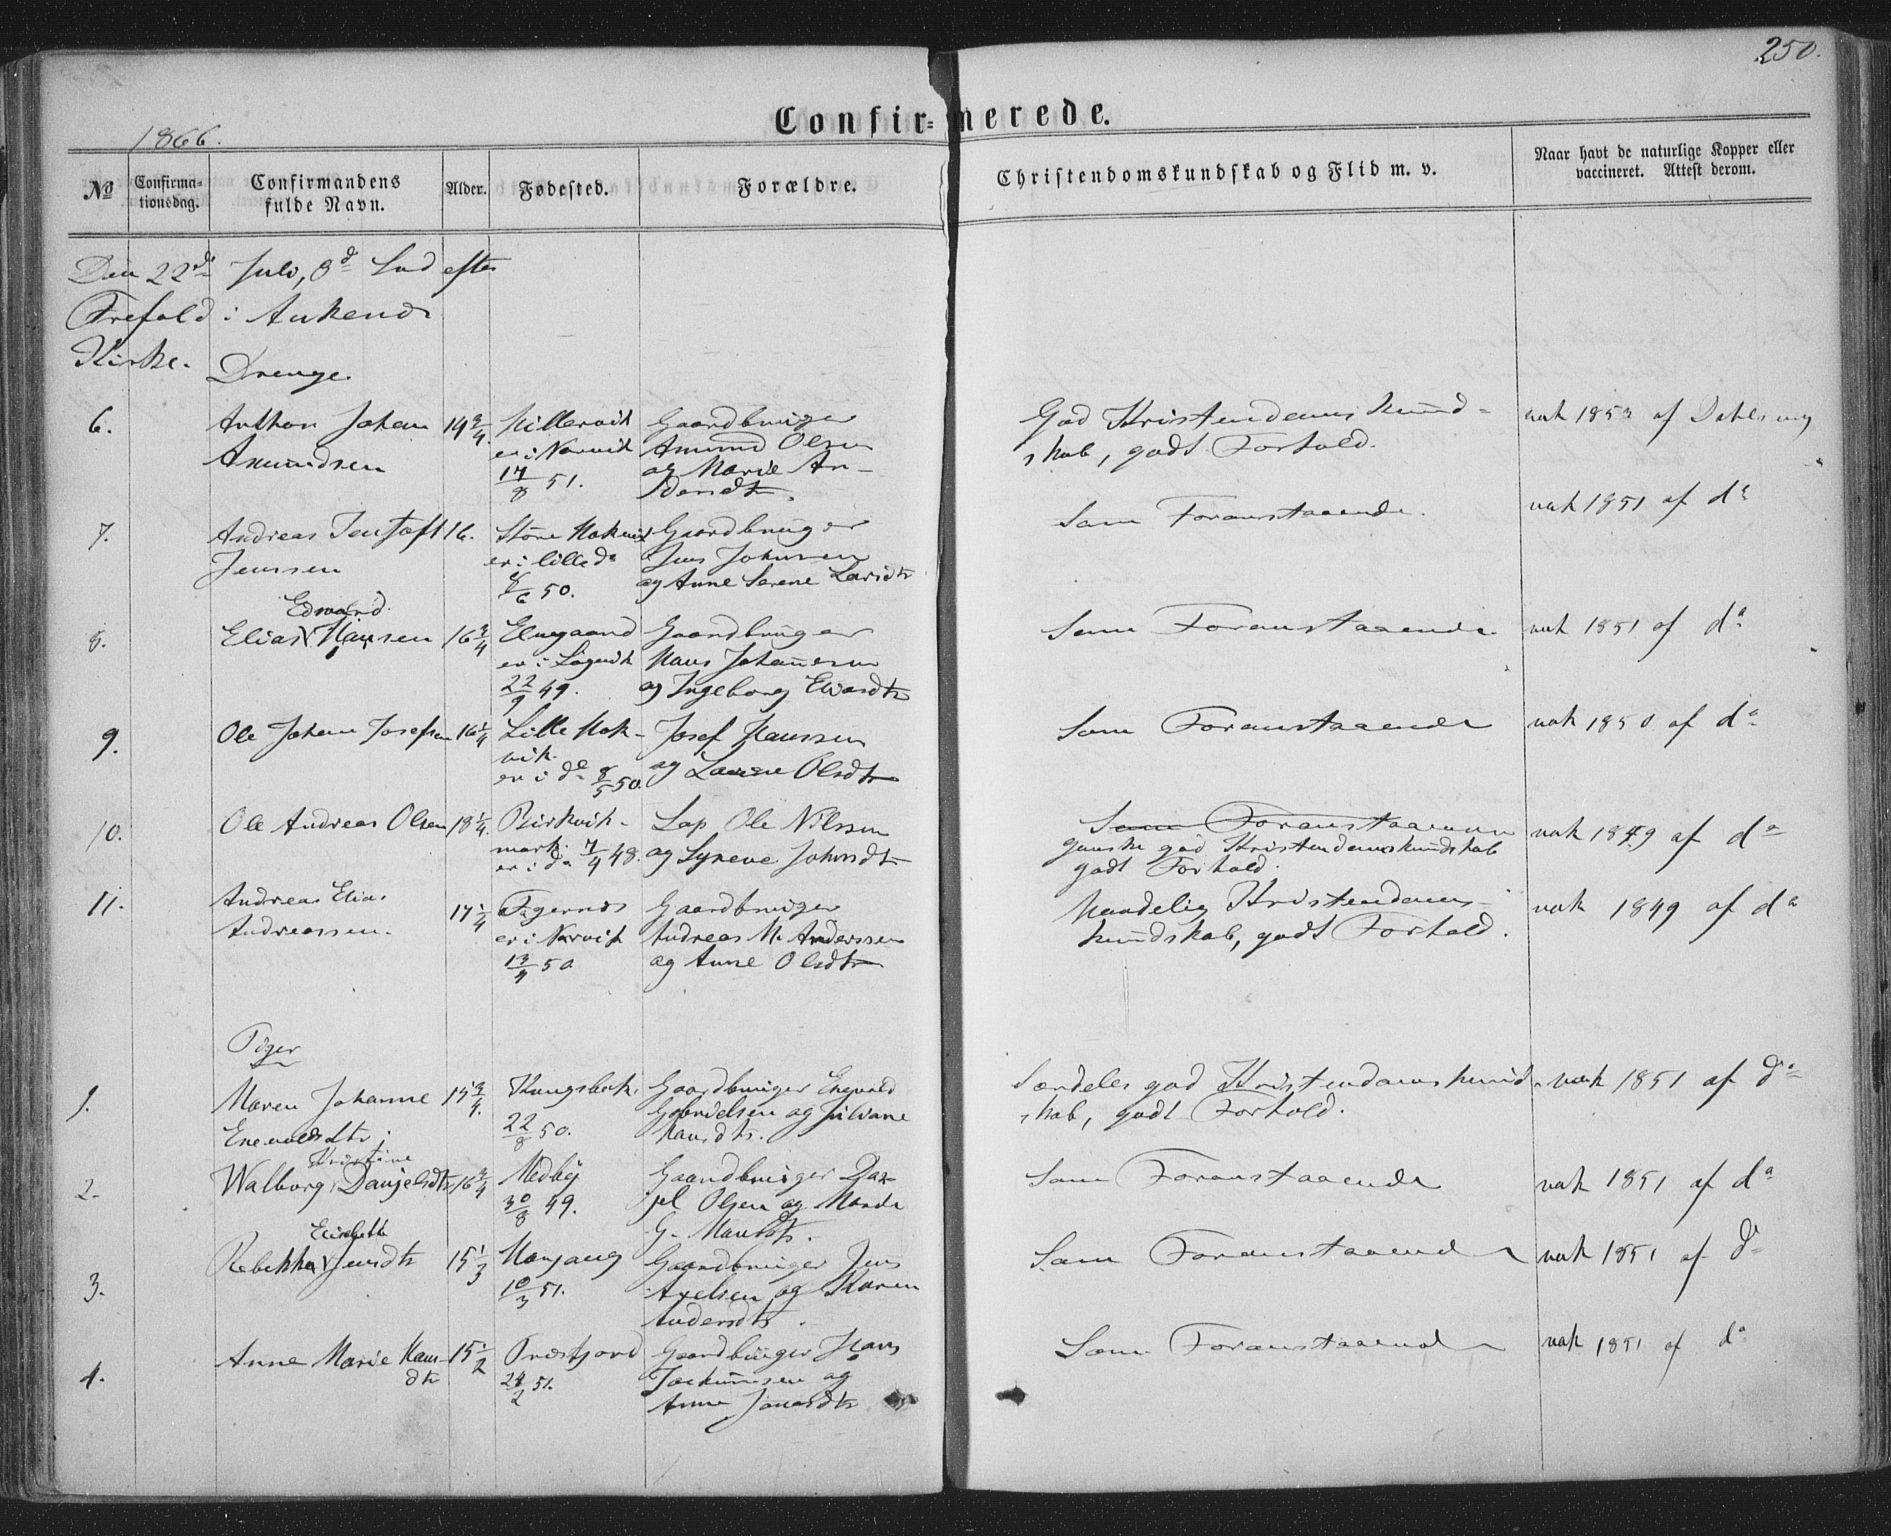 250.
Confir=merede.
1866.
No
Confirma-
tionsdag.
Confirmandens
fulde Navn.
Alder.
Fødested.
Forældre.
Christendomskundskab og Flid m. v.
Naar havt de naturlige Kopper eller
vaccineret. Attest derom.
Den 22de Juli, 8de Sønd efter
Trefold i Ankenes
Kirke.
Drenge
6.
Anthon Johan
Amundsen
14 3/4
er i Narvik
17/8 51.
Gaardbruger
Amund Olsen
og Marie An-
dersdtr.
God Kristendomskund-
skab, godt Forhold.
vak 1853 af
7.
Andreas Jentoft
Jenssen
16.
er i lille do
6 50.
Gaardbruger
Jens Johnsen
og Anne Serene Larsdtr
Som Foranstaaende.
vak 1851 af do
8.
Edward
Elias Hansen
16 3/4
Elvegaard
22/9 49.
Gaardbruger
Hans Johannesen
og Ingeborg Elvardtr
Som Foranstaaende
vak 1851 af do
9.
Ole Johan Josefsen
16 1/4
Lille Hak-
vik.
er i do 8/5 50.
Josef Hanssen
og Olsdtr
Som Foranstaaende
vak 1850 af do
10.
Ole Andreas Olsen
18 1/4.
Beisvik-
mark.
er i do 7/4 48.
Lap Ole Nilssen
og Johnsdtr
Som Foranstaaende
ganske god Kristendomskundskab
godt Forhold.
vak 1849 af do
11.
Andreas Elias
Andreassen.
17 1/4
Fagernes
er i Narvik
13/4 50
Gaardbruger
Andreas M. Anderssen
og Anne Olsdtr
Maadelig Kristendoms-
kundskab, godt Forhold.
vak 1849 af do
Piger
1.
Maren Johanne
Enevoldsdtr.
15 3/4.
Kongsbak.
22/8 50.
Gaardbruger Enevold
Gabrielsen og Juliane
Hansdtr.
Særdeles god Kristendomskund-
skab, godt Forhold.
vak 1851 af do
2.
Kristine
Walborg Danjelsdtr
16 3/4
Medby
30/8 49.
Gaardbruger Dan-
jel Olsen og
G. Hansdtr.
Som Foranstaaende
vak 1851 af do
3.
Elisabeth
Rebekka Jensdtr
15 1/3
10/3 51.
Gaardbruger Jens
Axelsen og Maren
Andersdtr.
Som Foranstaaende
vak 1851 af do
4.
Anne Marie Hans-
dtr
15 1/2
24/2 51.
Gaardbruger Hans
Jochumsen og
Anne Jonasdtr
Som Foranstaaende
vak 1851 af do